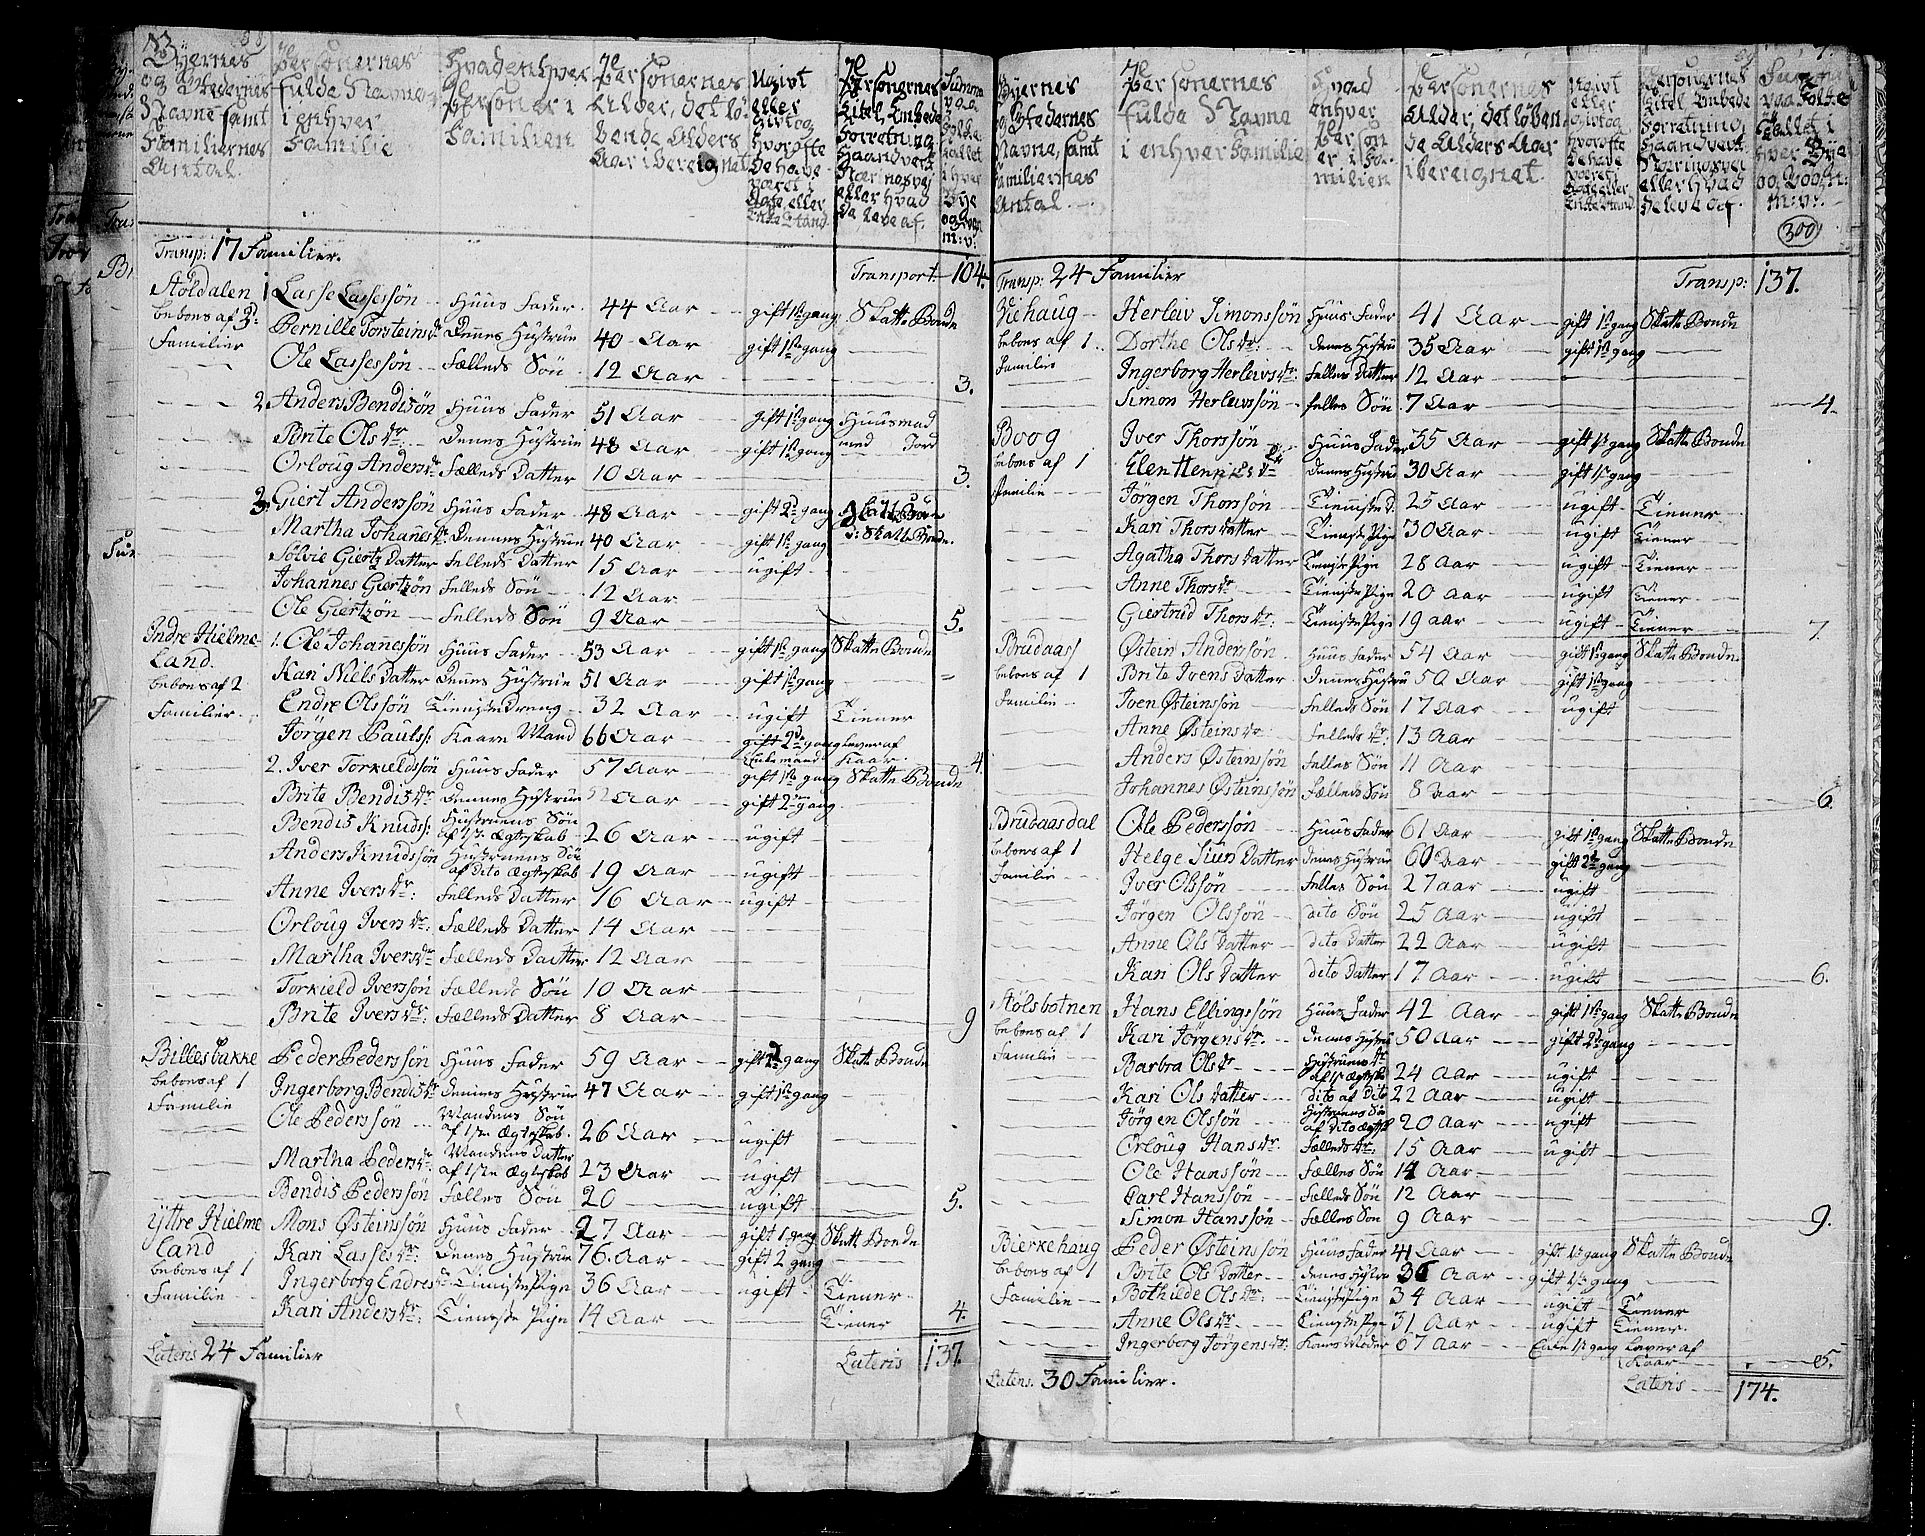 Byernes
og Stedernes
Navne samt
Familiernes
Antal.
Personernes
Fulde Navne
i enhver
Familie
Hvad enhver
Person er i
Familien
Personernes
Alder, det lö-
bende Alders
Aar iberegnet
Ugivt
eller
Givt og
hvorofte
de have
været i
Ægte eller
Enke Stand
Personernes
Titel, Embede
Forretning
Haandverk
Næringsvej
eller hvad
de leve af.
Summa
paa
Folke
Tallet
i hver
Bye
og Sogn
m: v:
Transp: 17 Familier. Transport 104.
Stöldalen 1 Lasse Lassessön Huus Fader 44 Aar gift 1ste gang Skatte Bonde
bebons af 3: Pernille Torsteinsdr Dennes Hustrue 40 Aar gift 1ste gang
Familier Ole Lassessön Fælleds Sön 12 Aar 3.
2. Anders Bendisön Huus Fader 51 Aar gift 1ste gang Huusmad
Brite Olsdr Dennes Hustrue 48 Aar gift 1ste gang med Jord
Orloug Andersdr Fælleds Datter 10 Aar 3.
3. Giert Anderssön Huus Fader 48 Aar gift 2den gang
Martha Johanesdr: Dennes Hustrue 40 Aar gift 1ste gang Skatte Bonde.
Sölvie Giertz Datter Felleds Datter 15 Aar ugift
Johannes Giertzön Felleds Sön 12 Aar
Ole Giertzön Felleds Sön 9 Aar 5.
Indre Hielme 1. Ole Johannessön Huus Fader 53 Aar gift 1ste gang Skatte Bonde
Land. Kari Niels Datter Dennes Hustrue 51 Aar gift 1ste gang
bebons af 2 Endre Olssön Tienste Dreng 32 Aar ugift Tiener
Familier. Jörgen Pauls: Kaare Mand 66 Aar gift 2den gang Lever af
Enkemand Kaar. 4.
2. Iver Torkieldssön Huus Fader 57 Aar gift 1ste gang Skatte Bonde
Brite Bendisdr Dennes Hustrue Aar gift 2den gang
Bendis Knuds: Hustruens Sön af 1ste Ægteskab 26 Aar ugift
Anders Knudssön Hustruens Sön af dito Ægteskab 19 Aar ugift
Anne Iversdr: Felleds Datter 16 Aar ugift
Orloug Iversdr: Fælleds Datter 14 Aar
Martha Iversdr Fælleds Datter 12 Aar
Torkield Iverssön Fælleds Sön 10 Aar
Brite Iversdr: Fælleds Datter 8 Aar 9
Billesbakke Peder Pederssön Huus Fader 59 Aar gift 2den gang Skatte Bonde
bebons af 1 Ingerborg Bendisdr Dennes Hustrue 47 Aar gift 1ste gang
Familie Ole Pederssön Mandens Sön af 1ste Ægteskab. 26 Aar ugift
Martha Pedersdr. Mandens Datter af 1ste Ægteskab 23 Aar ugift
Bendis Pederssön Fælles Sön 20 ugift 5.
Yttre Hielme Mons Østeinssön Huus Fader 27 Aar gift 1 gang Skatt Bonde
Land Kari Lassesdr: Dennes Hustrue 76. Aar gift 2 gang
bebons af 1 Ingerborg Endresdr Tieniste Pige 36 Aar ugift Tiener
Familie Kari Andersdr: Tieneste Pige 14 Aar Tiener 4.
Lateris 24 Familier Lateris 137.
Byernes
og Stedernes
Navne, samt
Familiernes
Antal.
Personernes
Fulde Navne
i enhver Familie
Hvad
enhver
Person
er i Fa-
milien
Personernes
Alder, det löben
de Alders Aar
iberegnet.
Ugivt
eller
Givt og
hvorofte
de have
været i
Ægte eller
Enke Stand
Personernes
Titel Embede
Forretning
Haandverk
Næringsvei
eller hvad
de leve af
Summa
paa Folke
Tallet i
hver Bye
og Sogn:
m: v:
300
Transp: 24 Familier Transp: 137.
Viehaug Herleiv Simonssön Huus Fader 41 Aar gift 1ste gang Skatte Bonde
bebons af 1 Dorthe Olsdr: Dennes Hustru 35 Aar gift 1ste gang
Familie Ingerborg Herleivsdr: Felleds Datter 12 Aar
Simon Herleivssön felles Sön 7 Aar 4.
Boog Iver Thorssön Huus Fader 35 Aar gift 1ste gang Skatte Bonde
bebons af 1 Elen Dennes Hustru 30 Aar gift 1ste gang
Familie Jörgen Thorssön Tieniste D. 25 Aar ugift Tiener
Kari Thorsdatter Tieniste Pige 30 Aar ugift Tiener
Agatha Thorsdatter Tieniste Pige 28 Aar ugift Tiener
Anne Thorsdr Tieniste Pige 20 Aar ugift Tiener
Giertrud Thorsdr: Tieniste Pige 19 aar ugift Tiener 7.
Brudaas Østein Anderssön Huus Fader 54 Aar gift 1ste gang Skatte Bonde
bebons af 1 Brite Ivens Datter Dennes Hustru 50 Aar gift 1ste gang
Familie Iven Østeinssön Felleds Sön 17 Aar ugift
Anne Østeinsdr Felledsdr: 13 Aar
Anders Østeinssön Felles Sön 11 Aar
Johannes Østeinssön Fælleds Sön 8 Aar 6.
Brubaasdal Ole Pederssön Huus Fader 61 Aar gift 1ste gang Skatte Bonde
bebons af 1 Helge Siurs Datter Dennes Hustrue 60 Aar gift 2den gang
Familie Iver Olssön Felles Sön 27 aar ugift
Jörgen Olssön dito Sön 25 Aar ugift
Anne Olsdatter dito Datter 22 Aar ugift
Kari Olsdatter dito Datter 17 Aar ugift 6.
Stölsbotnen Hans Ellingssön Huus Fader 42 Aar gift 1ste gang Skatte Bonde
bebons af 1 Kari Jörgensdr. Dennes Hustru 50 Aar gift 2den gang
Familie Barbra Olsdr Hustruens dr af 1ste Ægteskab 24 Aar ugift
Kari Olsdatter dito af dito 22 Aar ugift
Jörgen Olssön Hustruens Sön af dito Ægtsk 20 Aar ugift
Orloug Hansdr: Fælledsdr: 15 Aar ugift
Ole Hanssön Fælles Sön 14 Aar
Carl Hanssön Fælleds Sön 12 Aar
Simon Hanssön Fælles Sön 9 Aar 9.
Bierkehaug Peder Østeinssön Huus Fader 41 Aar gift 1ste gang Skatte Bonde
bebons af 1 Brite Olsdatter Dennes Hustrue 36 Aar gift 1ste gang
Familie Bothilde Olsdr: Tieniste Pige 34 Aar ugift Tiener
Anne Olsdr Tieniste Pige 31 Aar ugift Tiener.
Ingerborg Jörgensdr: Kone Moder 67 Aar Enke 1ste gang Lever af
Kaar 5.
Lateris. 30 Familier. Lateris 174.